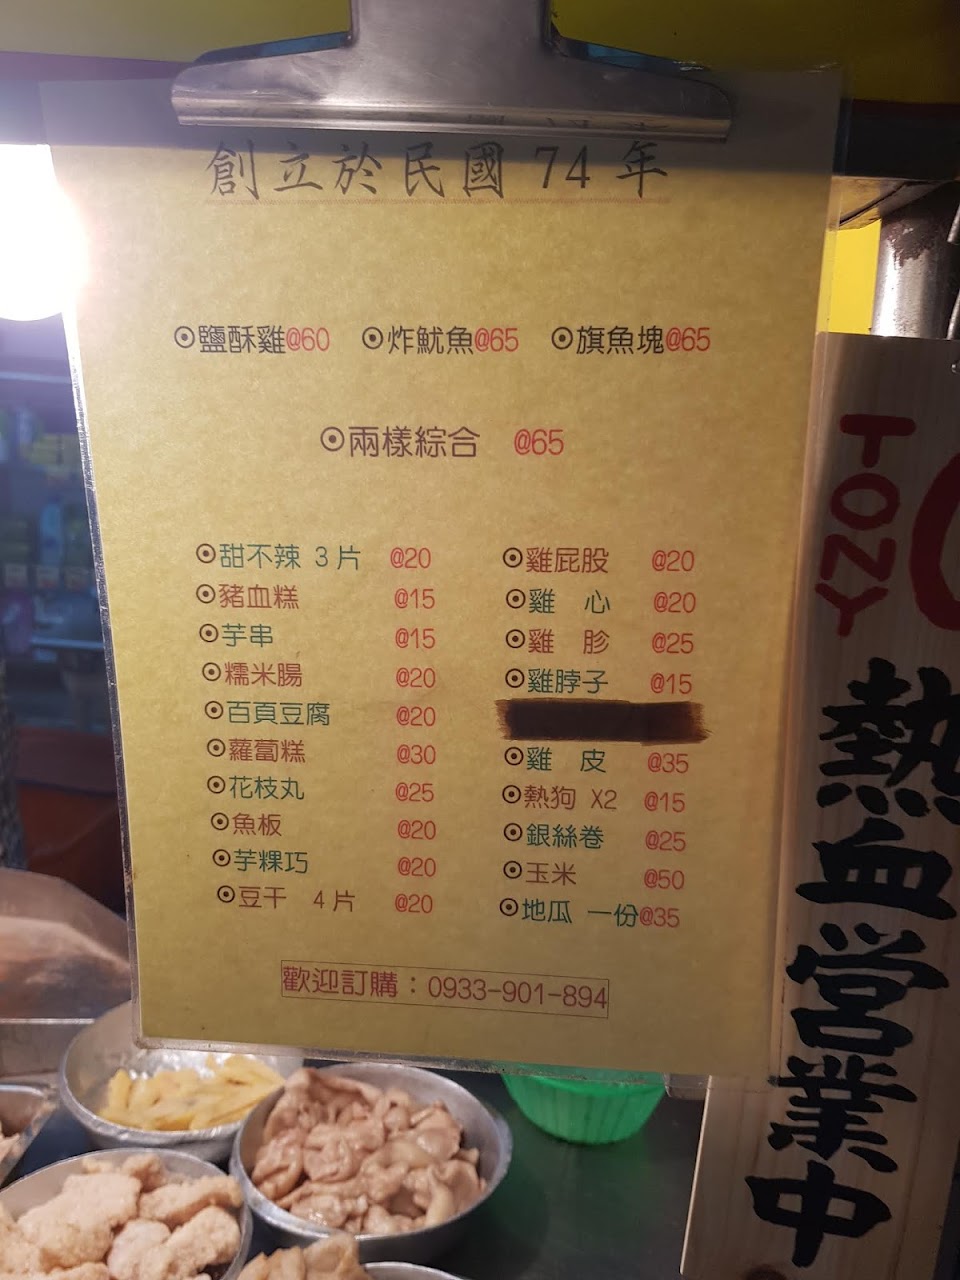 創立於民國 74 年
⊙鹽酥雞@60 ⊙炸魷魚@65 ⊙旗魚塊@65
⊙兩樣綜合 @65
⊙甜不辣 3片 @20
⊙豬血糕 @15
⊙芋串 @15
⊙糯米腸 @20
⊙百頁豆腐 @20
⊙蘿蔔糕 @30
⊙花枝丸 @25
⊙魚板 @20
⊙芋粿巧 @20
⊙豆干 4片 @20
⊙雞屁股 @20
⊙雞 心 @20
⊙雞 胗 @25
⊙雞脖子 @15
⊙雞 皮 @35
⊙熱狗 X2 @15
⊙銀絲卷 @25
⊙玉米 @50
⊙地瓜 一份@35
歡迎訂購：0933-901-894
TONY
熱血営業中